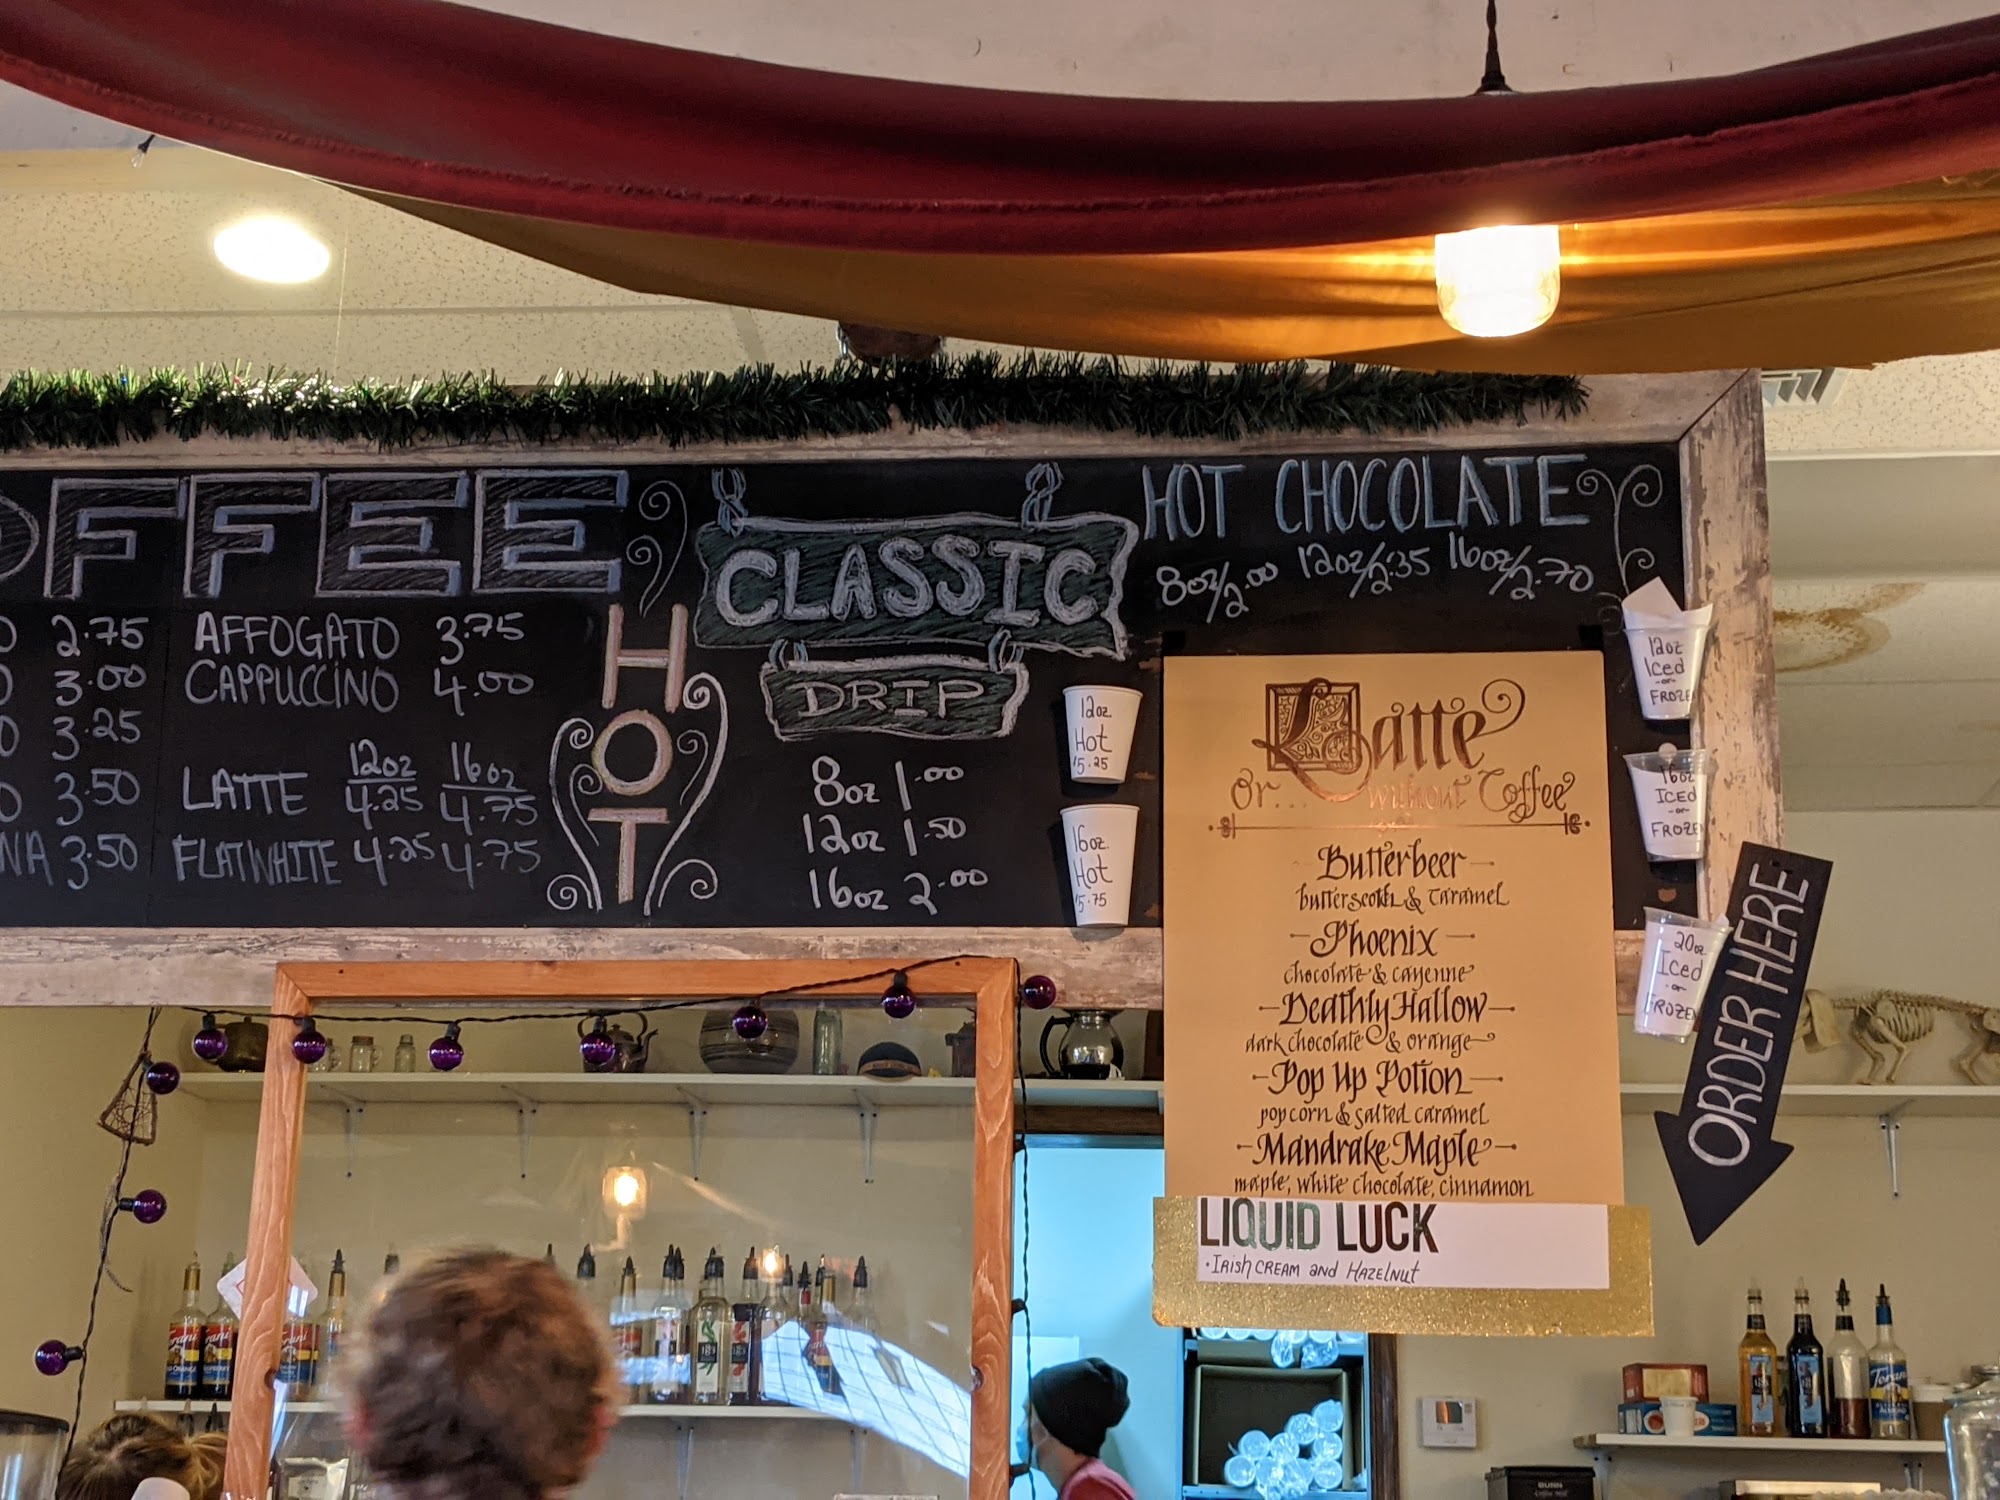 OFFEE
O 2.75
O 3.00
O 3.25
O 3.50
NA 3.50
AFFOGATO 3.75
CAPPUCCINO 4.00
12oz 16oz
LATTE 4.25 4.75
FLATWHITE 4.25 4.75
HOT
CLASSIC
DRIP
8oz 1.00
12oz 1.50
16oz 2.00
HOT CHOCOLATE
8oz/2.00 12oz/2.35 16oz/2.70
12oz.
Hot
$5.25
16oz.
Hot
$5.75
Latte
Or... without Coffee
Butterbeer
butterscotch & caramel
Phoenix
chocolate & cayenne
Deathly Hallow
dark chocolate & orange
Pop Up Potion
popcorn & salted caramel
Mandrake Maple
maple, white chocolate, cinnamon
LIQUID LUCK
• IRISH CREAM and HAZELNUT
12oz
Iced
-or-
FROZEN
16oz
ICED
-or-
FROZEN
20oz
Iced
-or-
FROZEN
ORDER HERE
Torani
BUNN